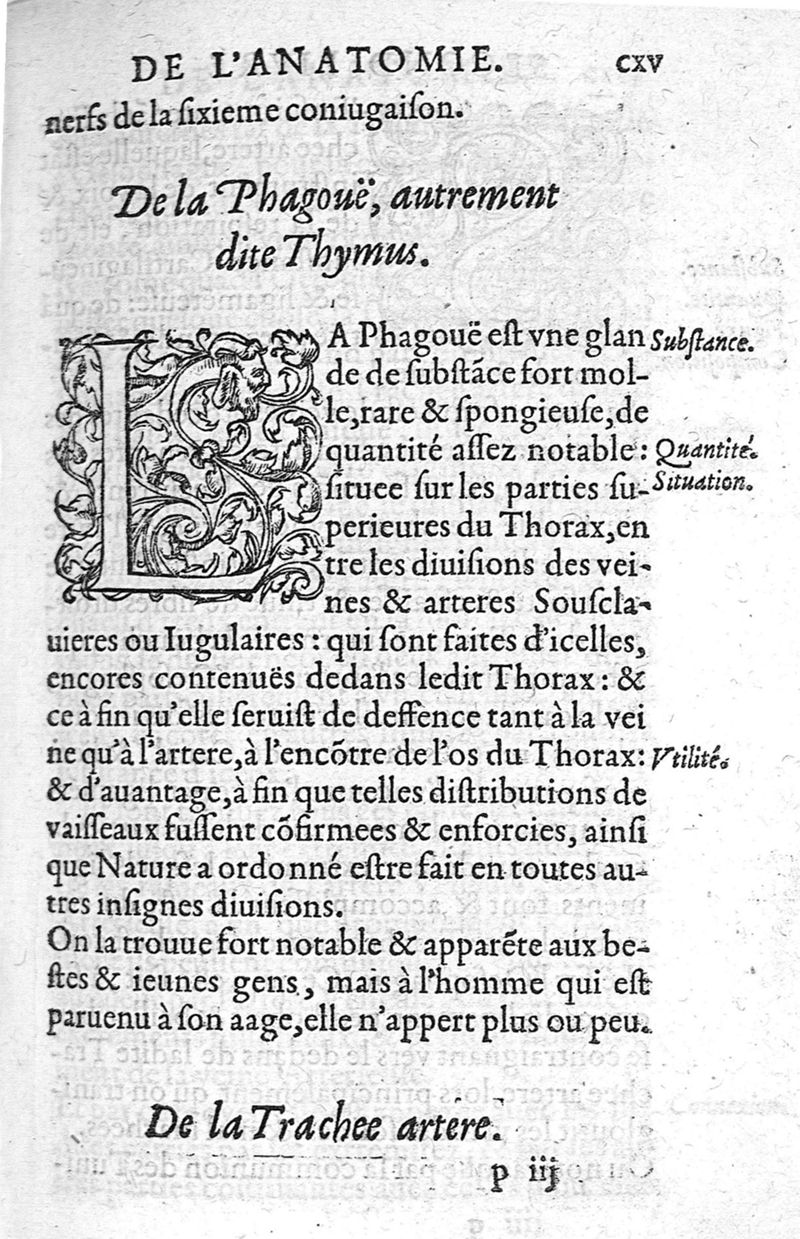 DE L'ANATOMIE. CXV
nerfs de la ſixieme coniugaiſon.
De la Phagouë, autrement
dite Thymus.
LA Phagouë eſt vne glan
Subſtance.
de de ſubſtãce fort mol-
le, rare & ſpongieuſe, de
quantité aſſez notable :
Quantité.
ſituee ſur les parties ſu-
Situation.
perieures du Thorax, en
tre les diuiſions des vei-
nes & arteres Souſcla-
uieres ou Iugulaires : qui ſont faites d'icelles,
encores contenuës dedans ledit Thorax : &
ce à fin qu'elle ſeruiſt de deffence tant à la vei
ne qu'à l'artere, à l'encõtre de l'os du Thorax:
Vtilité.
& d'auantage, à fin que telles diſtributions de
vaiſſeaux fuſſent cõfirmees & enforcies, ainſi
que Nature a ordonné eſtre fait en toutes au-
tres inſignes diuiſions.
On la trouue fort notable & apparẽte aux be-
ſtes & ieunes gens, mais à l'homme qui eſt
paruenu à ſon aage, elle n'appert plus ou peu.
De la Trachee artere.
p iij